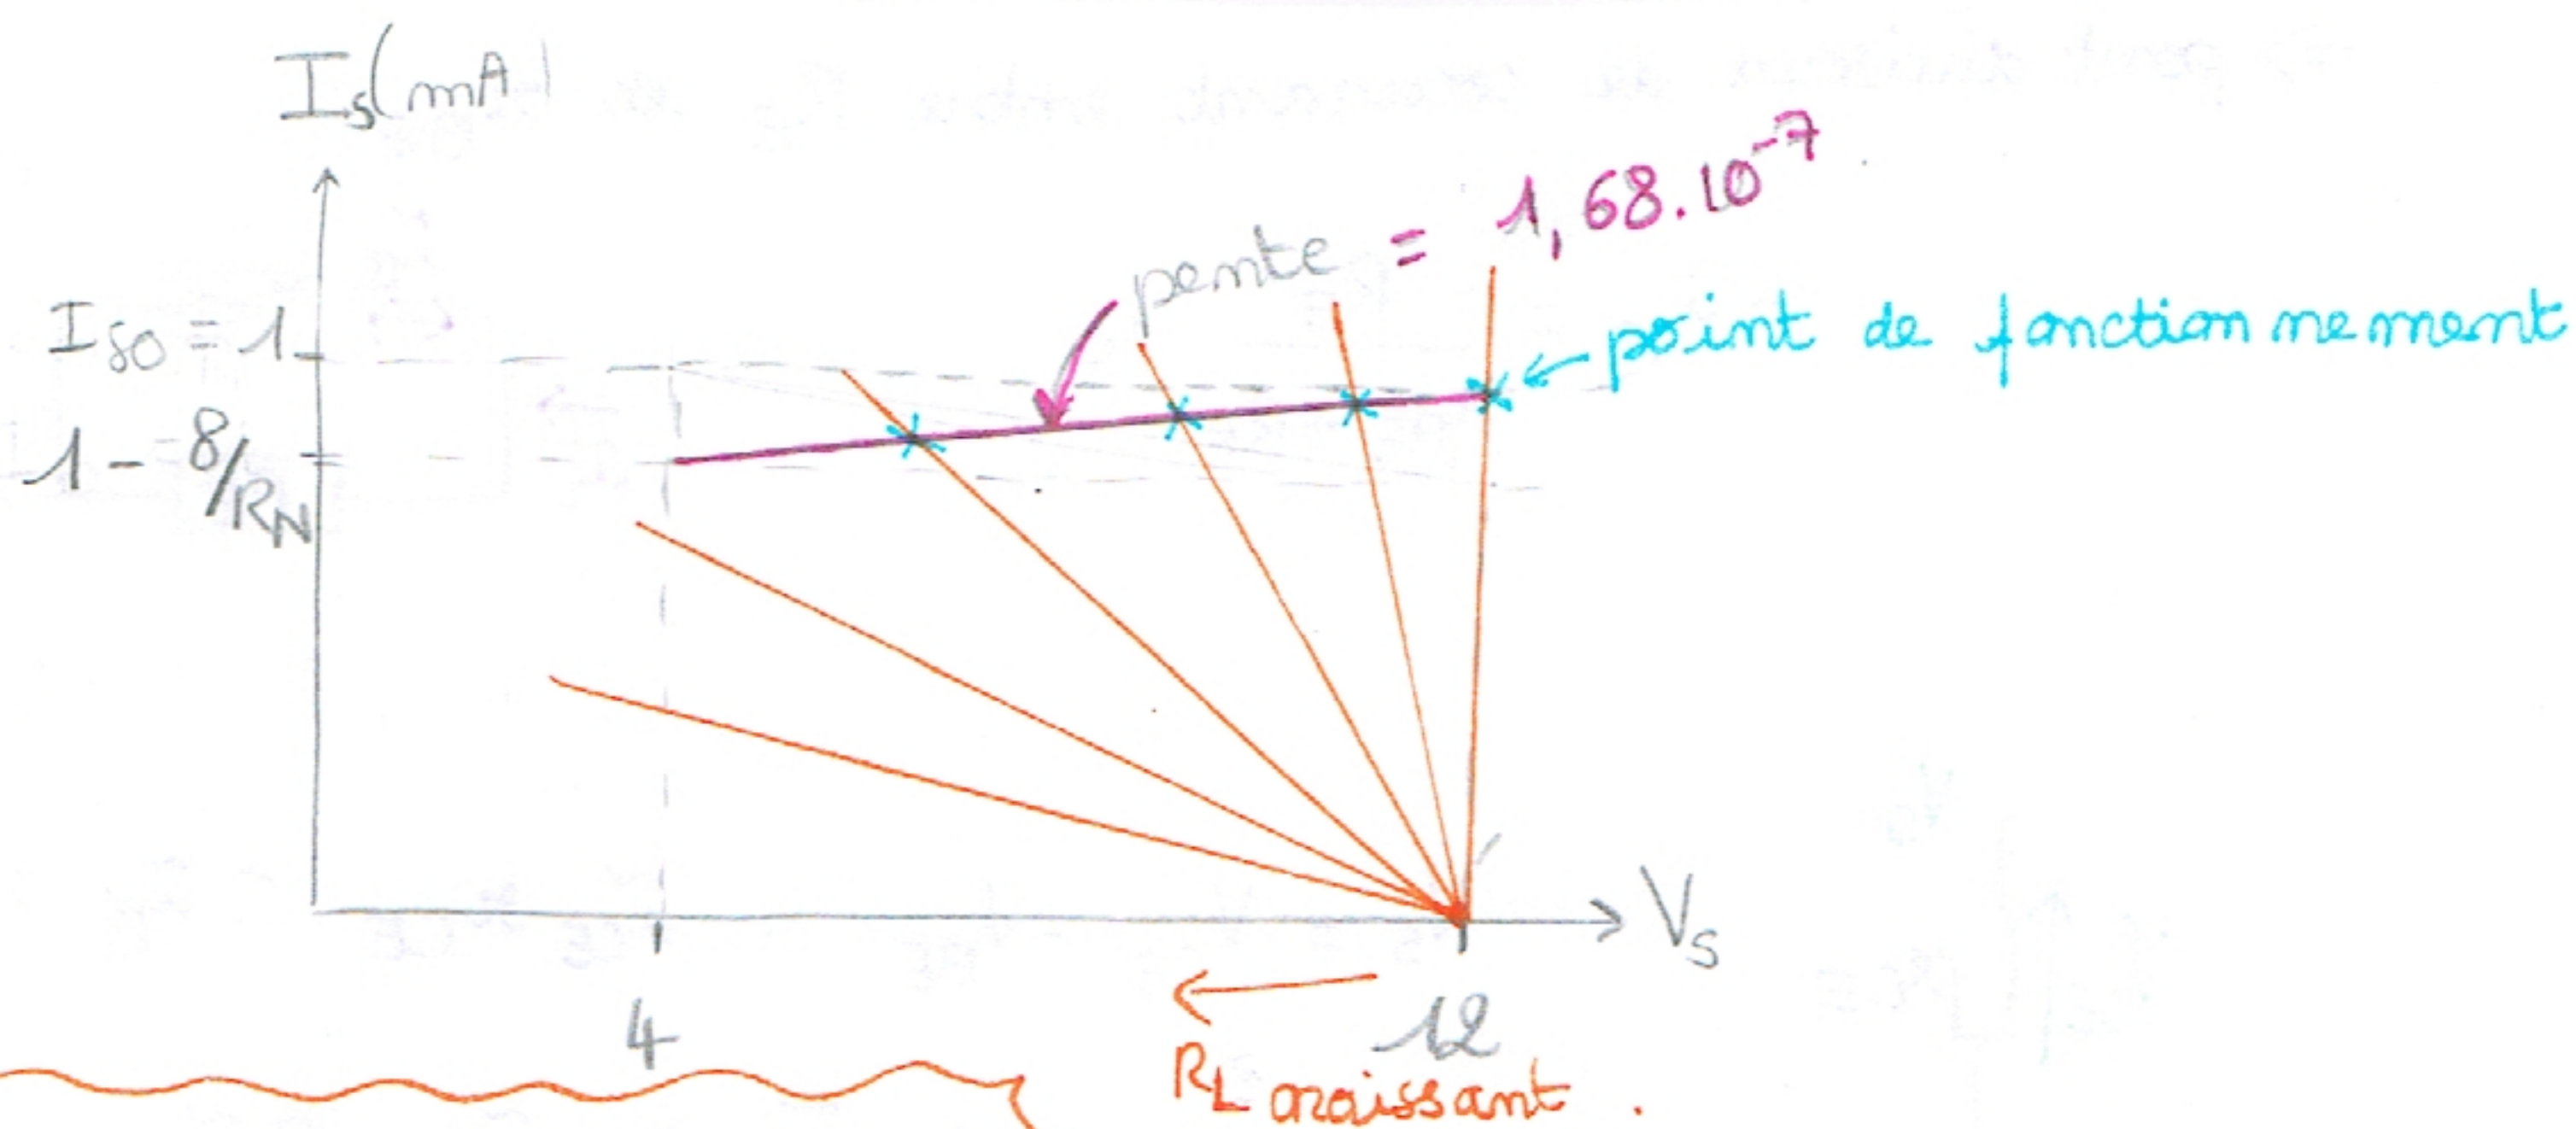 Is (mA)
pente = 1,68.10⁻⁷
Iso = 1
point de fonctionnement
1 - 8/RN
Vs
4
12
RL croissant.